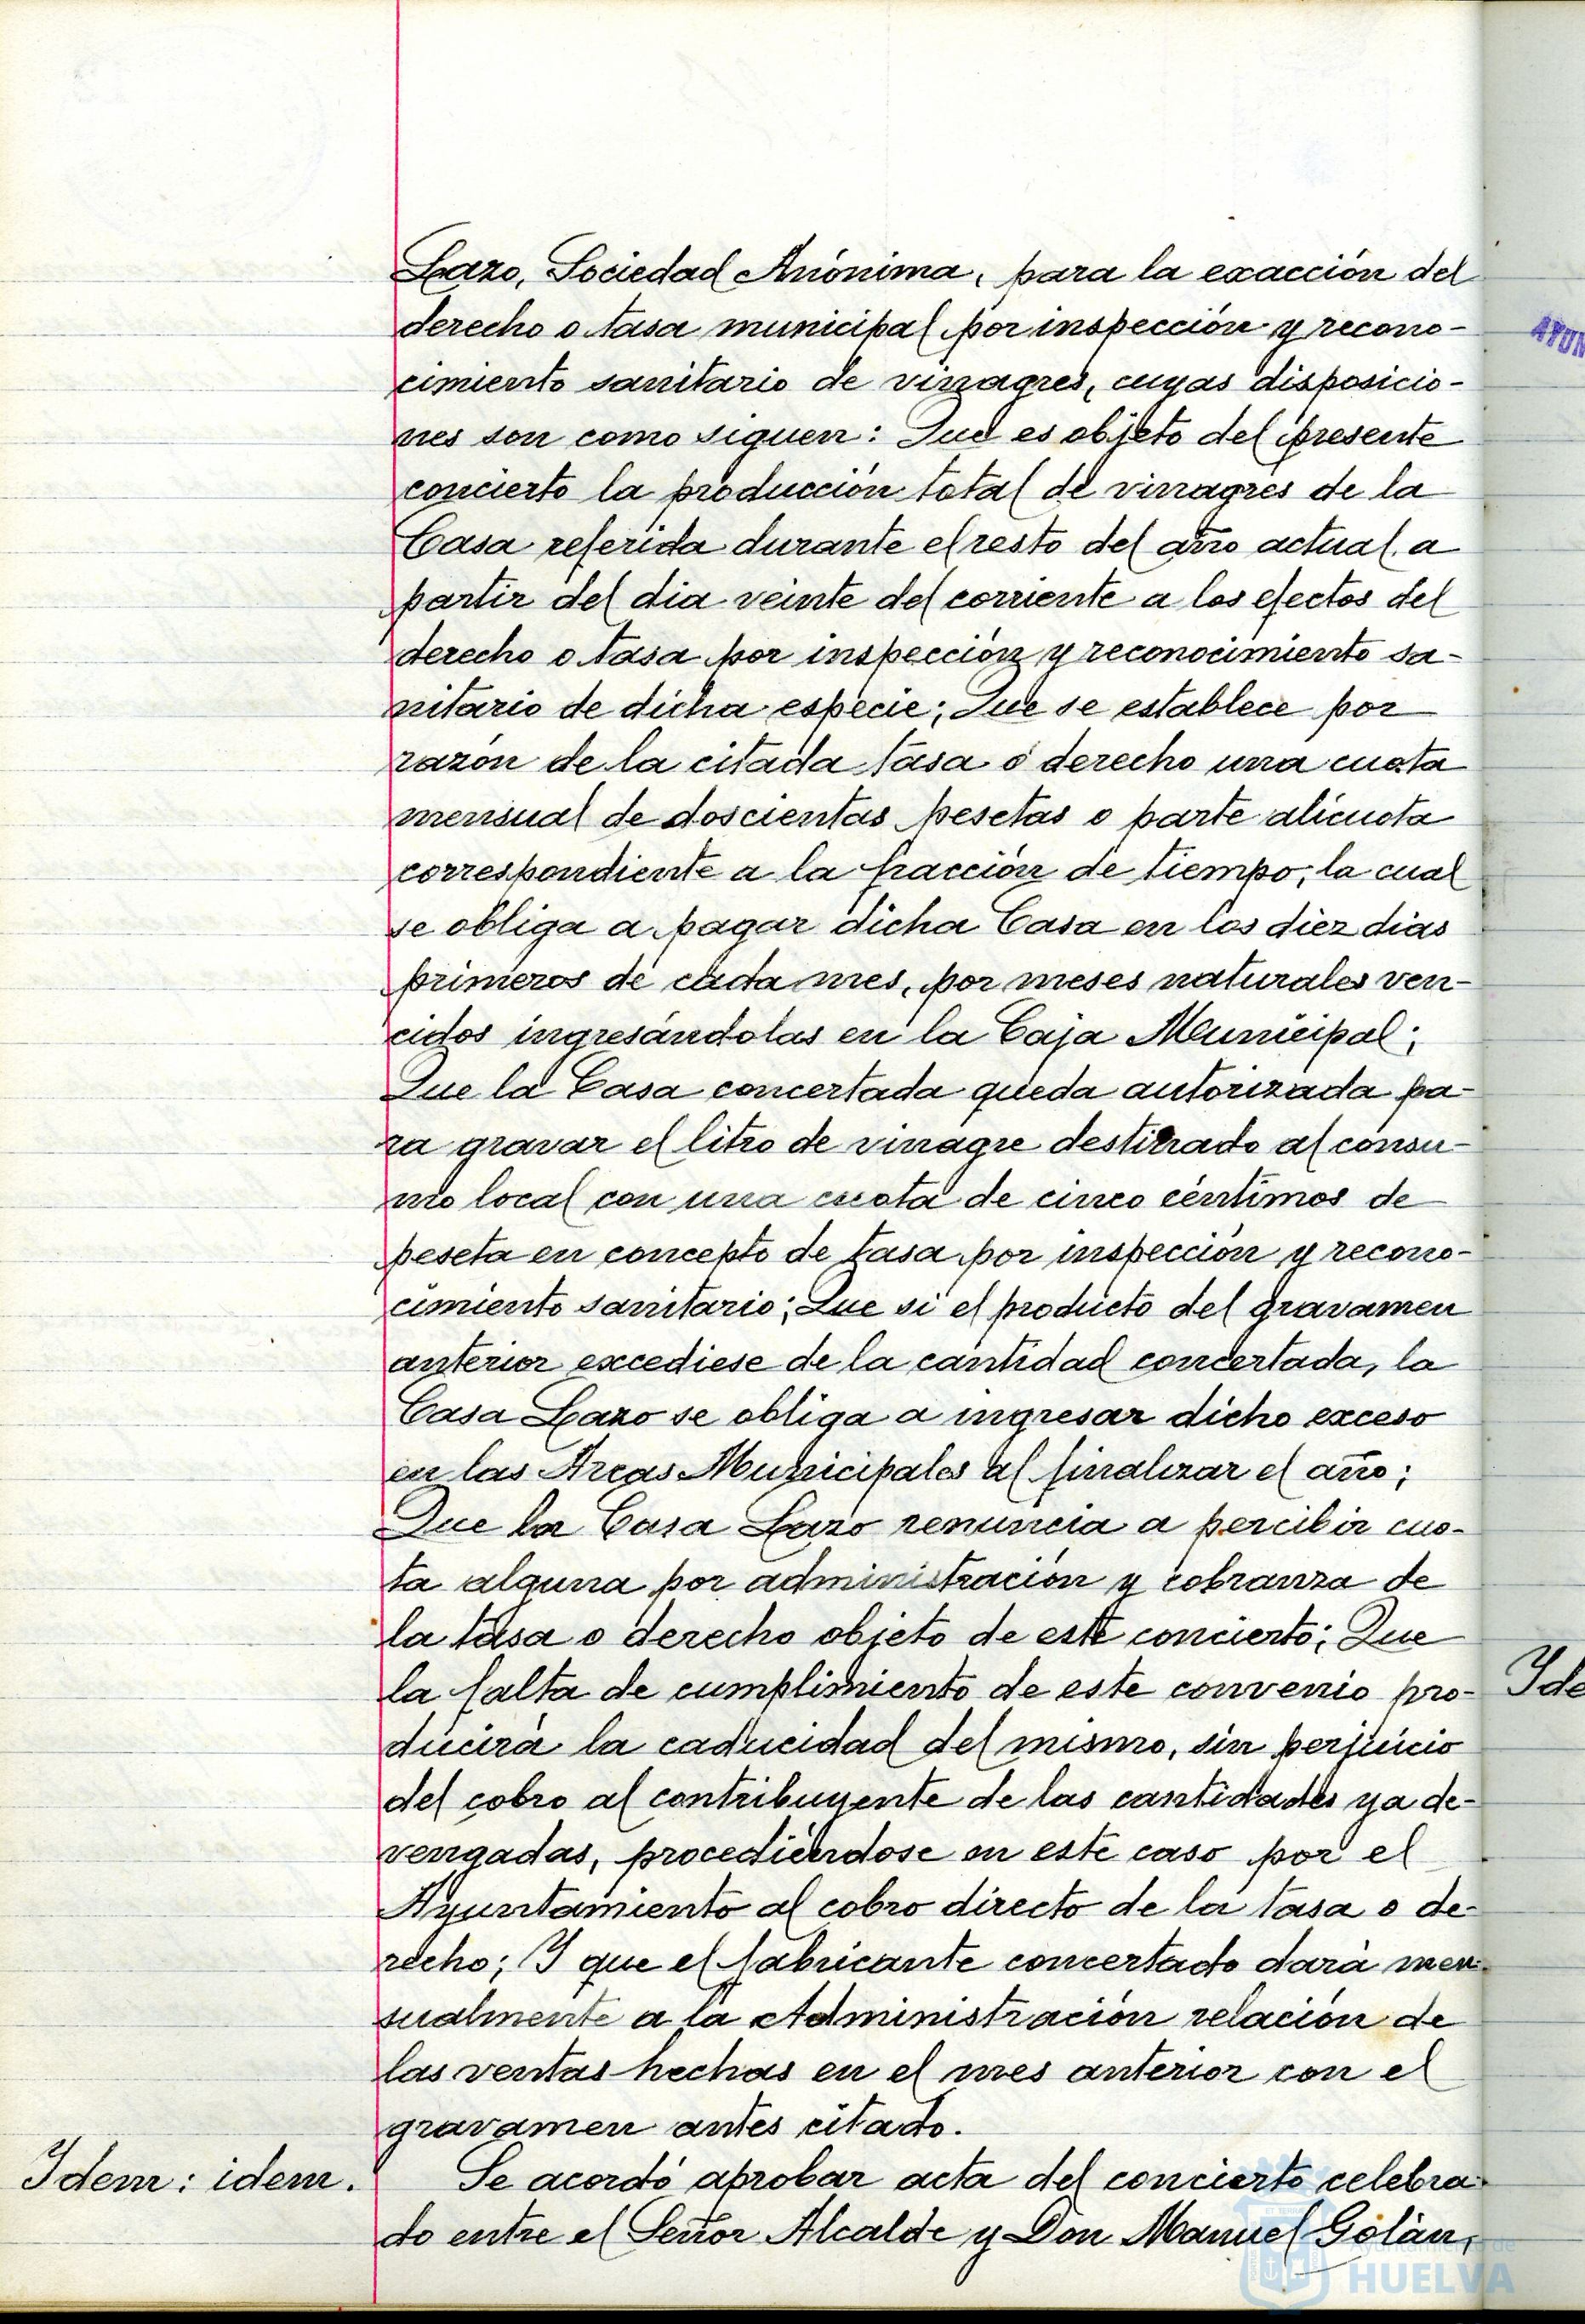 Lazo, Sociedad Anónima, para la exacción del
derecho o tasa municipal por inspección y recono-
cimiento sanitario de vinagres, cuyas disposicio-
nes son como siguen: Que es objeto del presente
concierto la producción total de vinagres de la
Casa referida durante el resto del año actual a
partir del dia veinte del corriente a los efectos del
derecho o tasa por inspección y reconocimiento sa-
nitario de dicha especie; Que se establece por
razón de la citada tasa o derecho una cuota
mensual de doscientas pesetas o parte alicuota
correspondiente a la fracción de tiempo, la cual
se obliga a pagar dicha Casa en los diez dias
primeros de cada mes, por meses naturales ven-
cidos ingresándolas en la Caja Municipal;
Que la Casa concertada queda autorizada pa-
ra gravar el litro de vinagre destinado al consu-
mo local con una cuota de cinco céntimos de
peseta en concepto de tasa por inspección y recono-
cimiento sanitario; Que si el producto del gravamen
anterior excediese de la cantidad concertada, la
Casa Lazo se obliga a ingresar dicho exceso
en las Arcas Municipales al finalizar el año;
Que la Casa Lazo renuncia a percibir cuo-
ta alguna por administración y cobranza de
la tasa o derecho objeto de este concierto; Que
la falta de cumplimiento de este convenio pro-
ducirá la caducidad del mismo, sin perjuicio
del cobro al contribuyente de las cantidades ya de-
vengadas, procediéndose en este caso por el
Ayuntamiento al cobro directo de la tasa o de-
recho; Y que el fabricante concertado dará men-
sualmente a la Administración relación de
las ventas hechas en el mes anterior con el
gravamen antes citado.
Idem: idem. Se acordó aprobar acta del concierto celebra-
do entre el Señor Alcalde y Don Manuel Golán,
AYUN
Ide
Ayuntamiento de
HUELVA